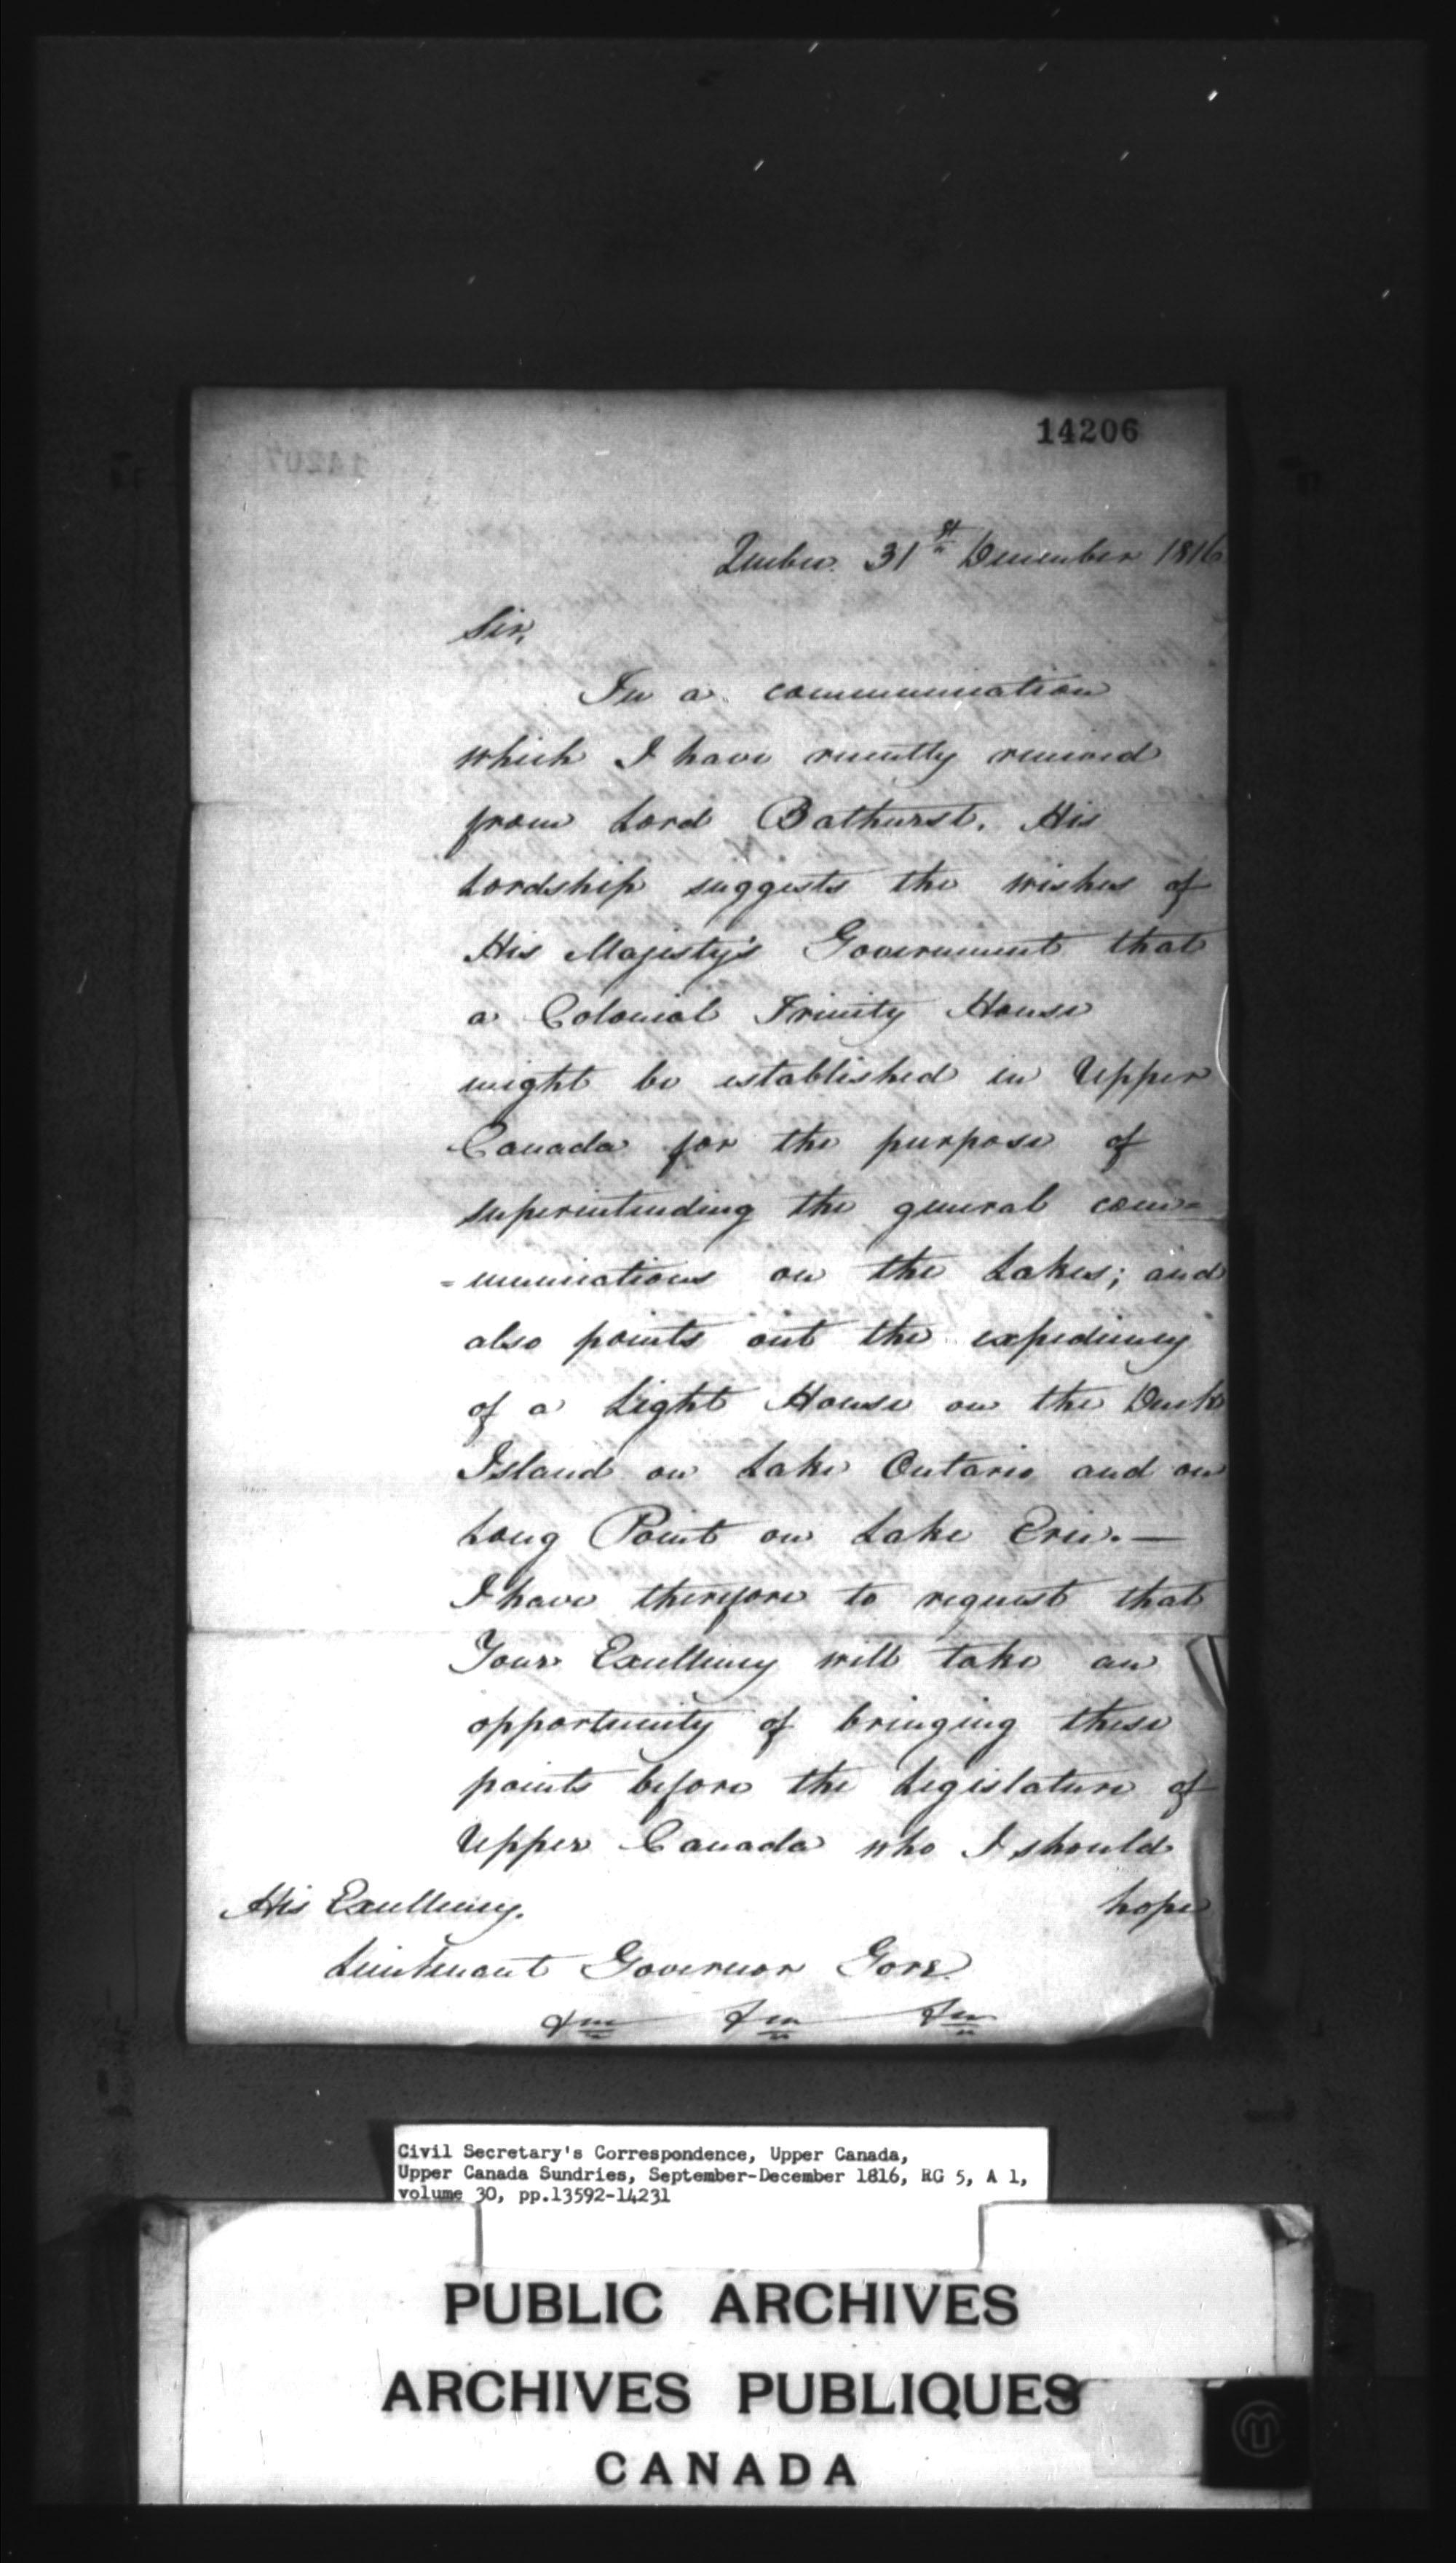 14206
Quebec 31st December 1816
Sir,
In a communication
which I have recently received
from Lord Bathurst, His
Lordship suggests the wishes of
His Majesty's Government that
a Colonial Trinity House
might be established in Upper
Canada for the purpose of
superintending the general com=
=munications on the Lakes; and
also points out the expediency
of a Light House on the Duck
Island on Lake Ontario and on
Long Point on Lake Erie.—
I have therefore to request that
Your Excellency will take an
opportunity of bringing these
points before the Legislature of
Upper Canada who I should
hope
His Excellency.
Lieutenant Governor Gore
&c &c &c
Civil Secretary's Correspondence, Upper Canada,
Upper Canada Sundries, September-December 1816, RG 5, A 1,
volume 30, pp.13592-14231
PUBLIC ARCHIVES
ARCHIVES PUBLIQUES
CANADA